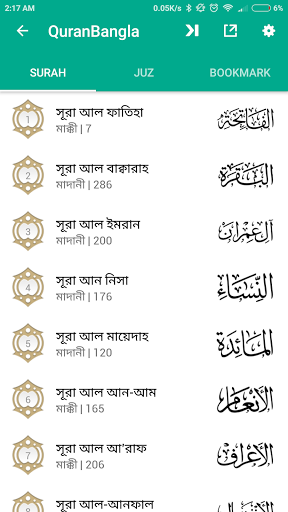 2:17 AM 0.05K/s
QuranBangla
SURAH JUZ BOOKMARK
1 সূরা আল ফাতিহা الفاتحة
মাক্কী | 7
2 সূরা আল বাক্বারাহ البقرة
মাদানী | 286
3 সূরা আল ইমরান آل عمران
মাদানী | 200
4 সূরা আন নিসা النساء
মাদানী | 176
5 সূরা আল মায়েদাহ المائدة
মাদানী | 120
6 সূরা আল আন-আম الأنعام
মাক্কী | 165
7 সূরা আল আ'রাফ الأعراف
মাক্কী | 206
8 সূরা আল-আনফাল الأنفال